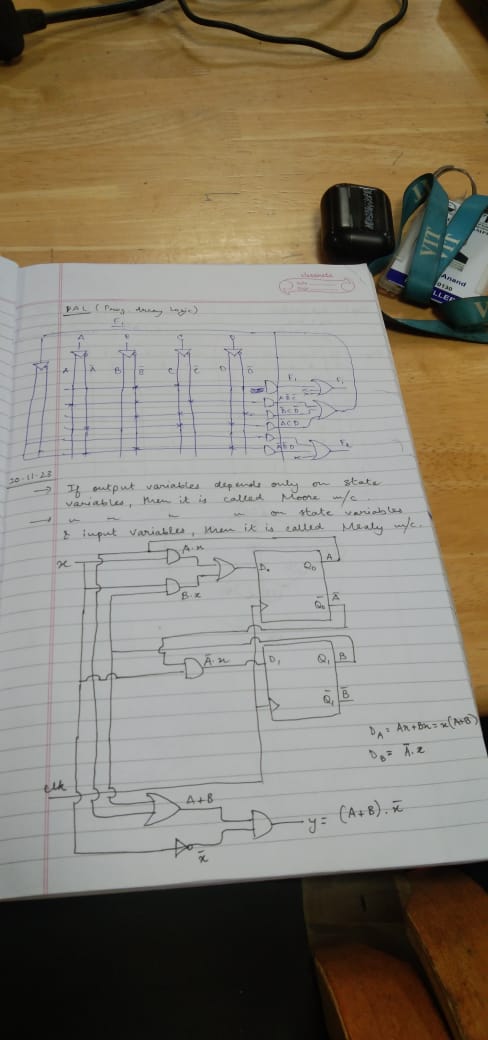 classmate
Date
Page
PAL (Prog. Array Logic)
F₁
A B C D
A Ā B B̄ C C̄ D D̄
F₁ F₁
ACD
F₂
20-11-23
→ If output variables depends only on state
variables, then it is called Moore m/c.
→ " " " " on state variables
& input variables, then it is called Mealy m/c.
x
A.x
B.x
D₀ Q₀ A
Q̄₀ Ā
Ā.x
D₁ Q₁ B
Q̄₁ B̄
D_A = Ax+Bx = x(A+B)
D_B = Ā.x
clk
A+B
y = (A+B).x̄
x̄
VIT
VIT
Anand
0130